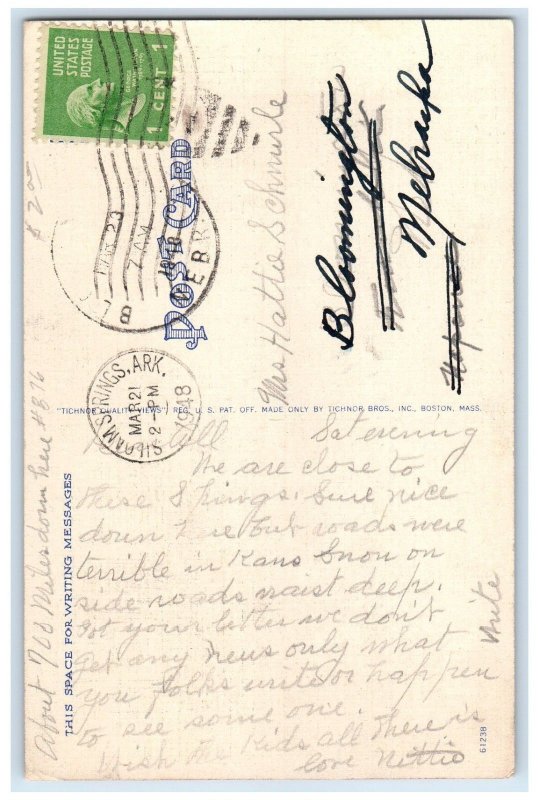 UNITED
STATES
POSTAGE
1 CENT 1
7 AM
1948
NEBR
POST CARD
Mrs Hattie Schnurle
Bloomington
Nebraska
SILOAM SPRINGS, ARK.
MAR 21
2 PM
1948
"TICHNOR QUALITY VIEWS" REG. U. S. PAT. OFF. MADE ONLY BY TICHNOR BROS., INC., BOSTON, MASS.
THIS SPACE FOR WRITING MESSAGES
All Sat evening
We are close to
these Springs. Sure nice
down here but roads were
terrible in Kans Snow on
side roads waist deep.
Got your letter we don't
get any news only what
you folks write or happen
to see some one.
Wish the Kids all there is
love Nettie
Write
About 700 Miles down here
61238